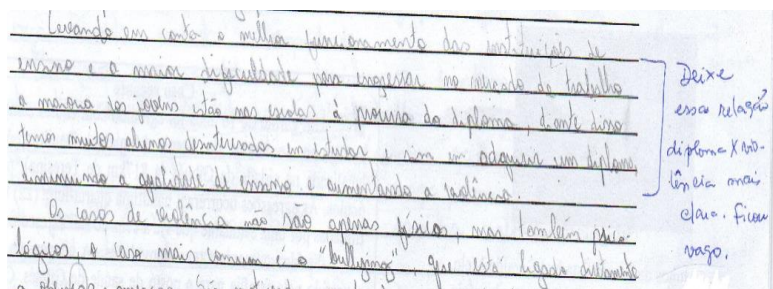 Levando em conta o melhor funcionamento das instituições de
ensino e a maior dificuldade para ingressar no mercado de trabalho
a maioria dos jovens estão nas escolas à procura do diploma, diante disso
temos muitos alunos desinteressados em estudar e sim em adquirir um diploma,
diminuindo a qualidade de ensino e aumentando a violência.
Os casos de violência não são apenas físicos, mas também psico-
lógicos, o caso mais comum é o "bullying", que está ligado diretamente
a
são
Deixe
essa relação
diploma X vio-
lência mais
clara. Ficou
vago.